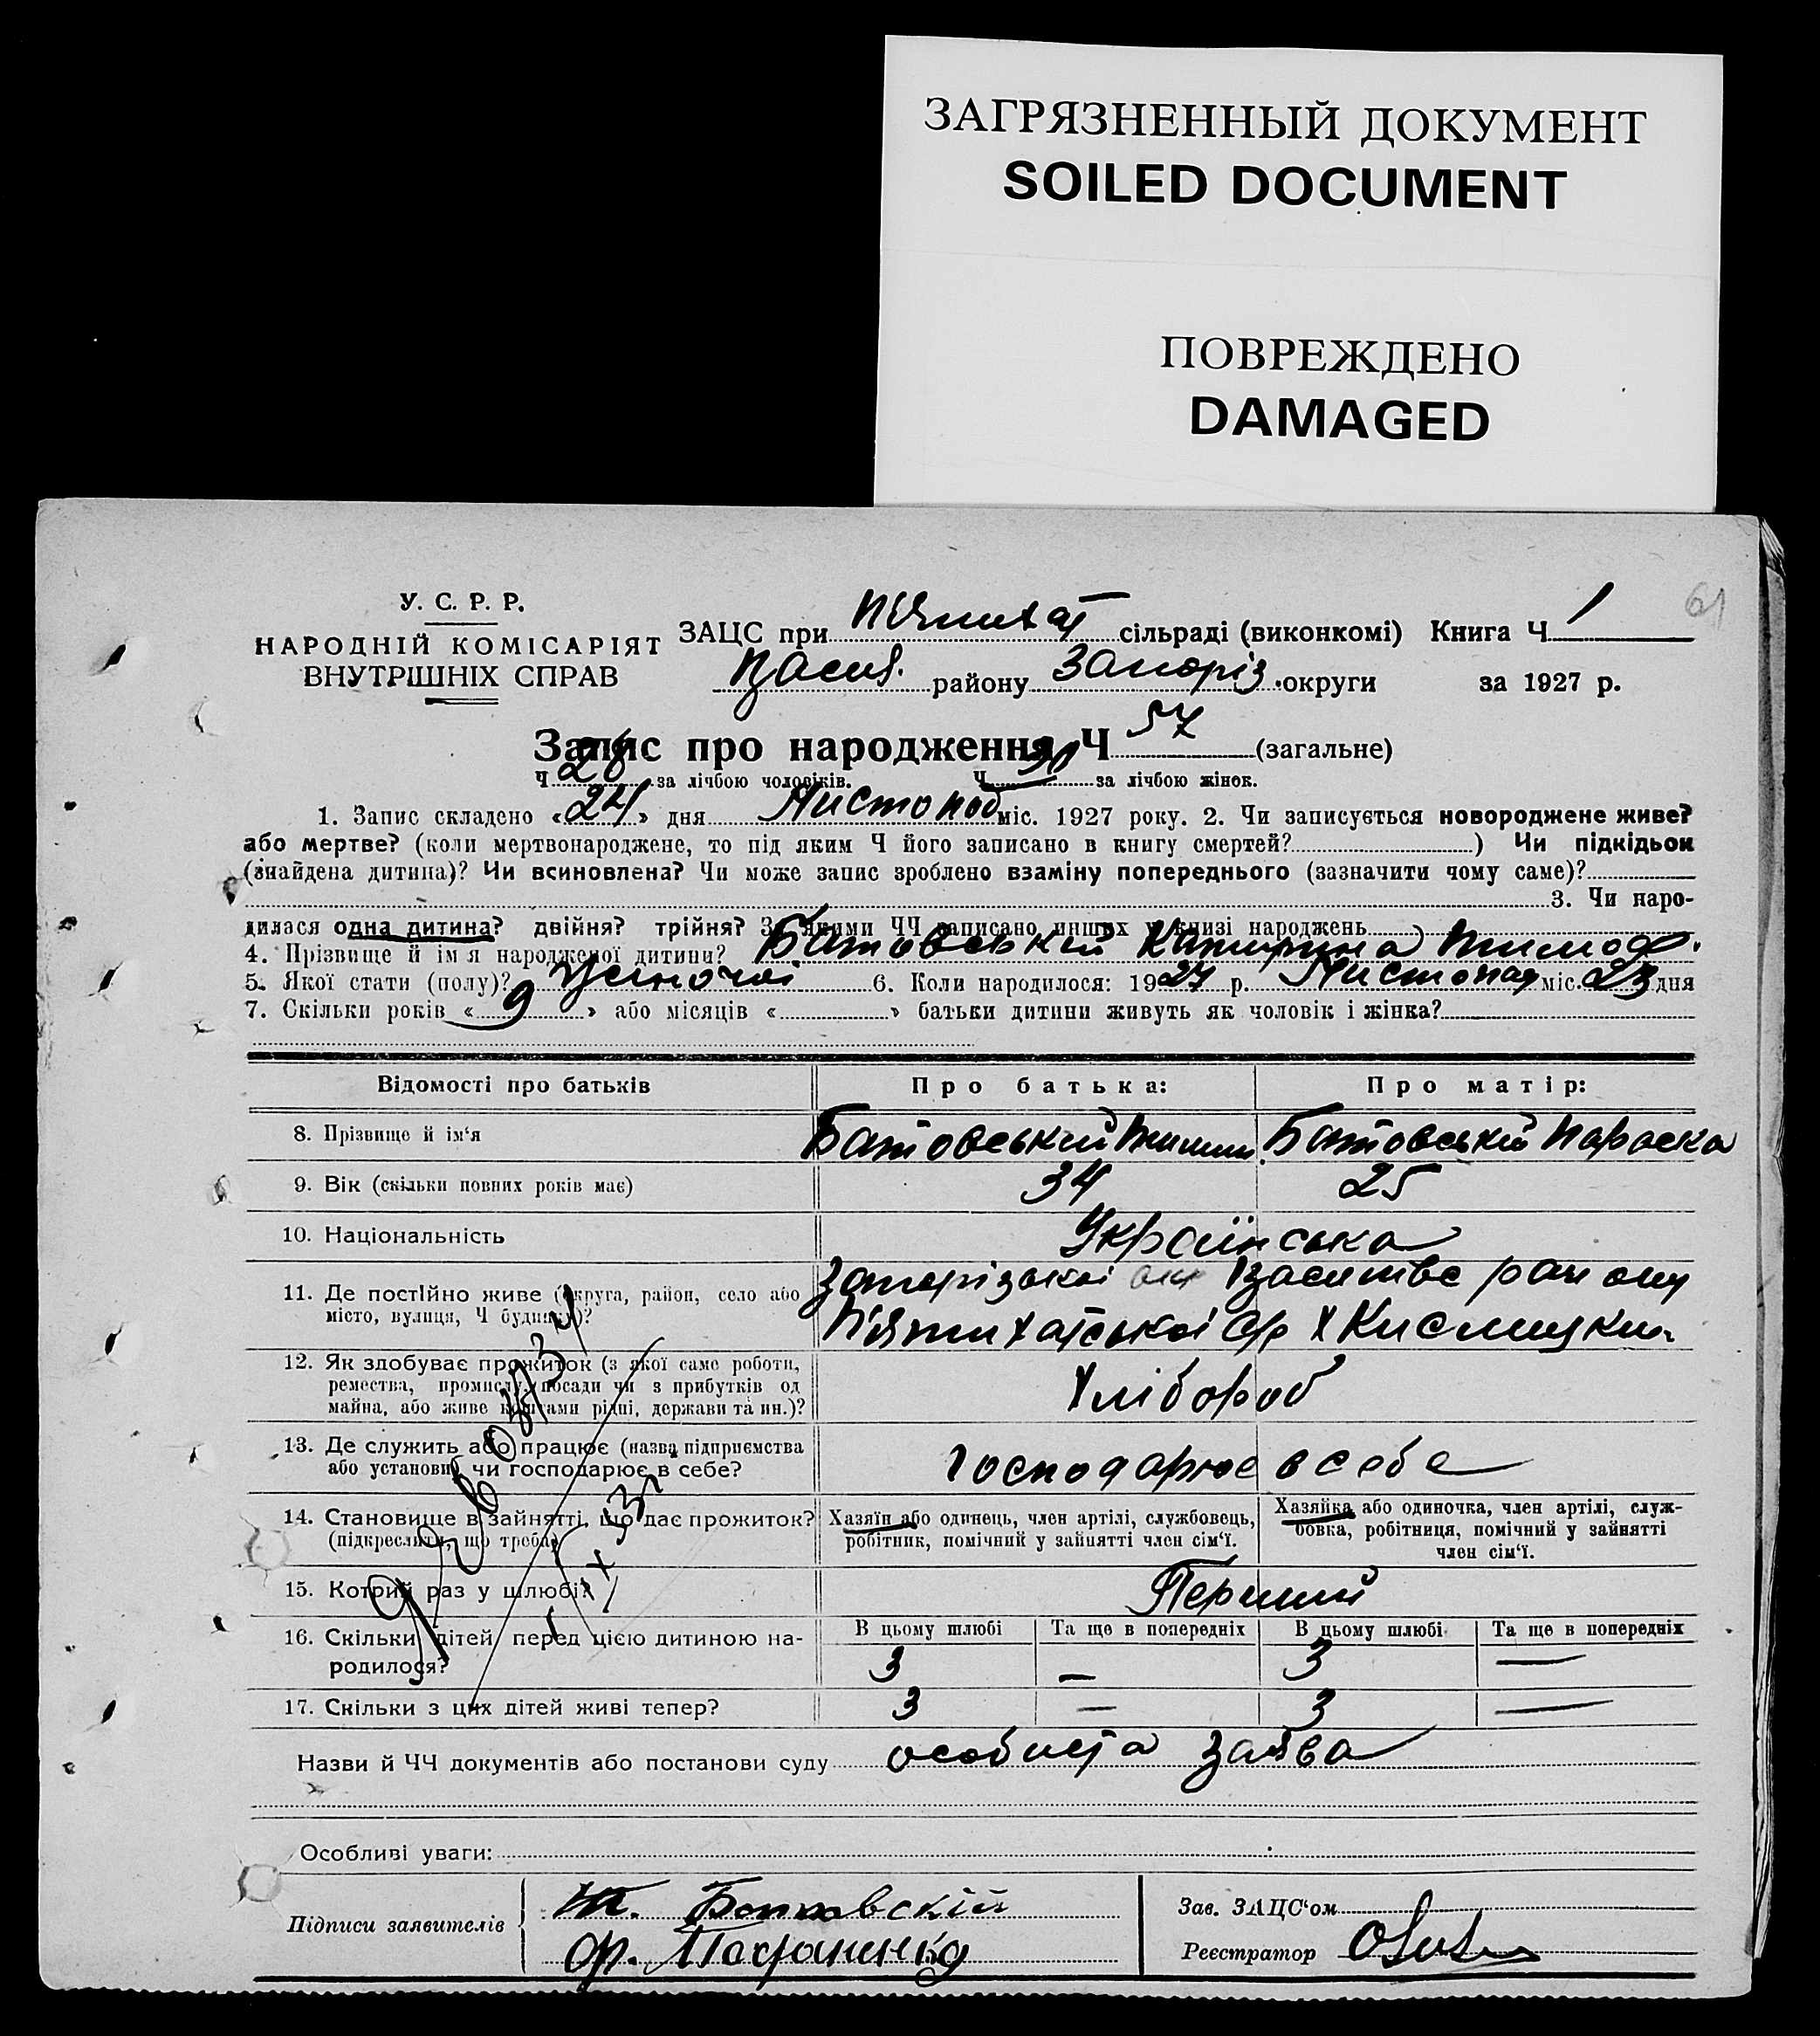 ЗАГРЯЗНЕННЫЙ ДОКУМЕНТ
SOILED DOCUMENT
ПОВРЕЖДЕНО
DAMAGED
61
У. С. Р. Р.
НАРОДНІЙ КОМІСАРІЯТ
ВНУТРІШНІХ СПРАВ
ЗАЦС при Пʼятихат сільраді (виконкомі) Книга Ч 1
Васил. району Запоріз. округи за 1927 р.
Запис про народження Ч 57 (загальне)
Ч 26 за лічбою чоловіків. Ч 31 за лічбою жінок.
1. Запис складено « 24 » дня Листопад міс. 1927 року. 2. Чи записується новороджене живе?
або мертве? (коли мертвонароджене, то під яким Ч його записано в книгу смертей? ) Чи підкідьок
(знайдена дитина)? Чи всиновлена? Чи може запис зроблено взаміну попереднього (зазначити чому саме)?
3. Чи наро-
дилася одна дитина? двійня? трійня? З якими ЧЧ записано инших у книзі народжень
4. Прізвище й імʼя народженої дитини? Батовський Катирина Тимоф.
5. Якої стати (полу)? Жіночої 6. Коли народилося: 1927 р. Листопад міс. 23 дня
7. Скільки років « 9 » або місяців « » батьки дитини живуть як чоловік і жінка?
Відомості про батьків Про батька: Про матір:
8. Прізвище й імʻя Батовський Тимиш Батовський Параска
9. Вік (скільки повних років має) 34 25
10. Національність Українська
11. Де постійно живе (округа, район, село або
місто, вулиця, Ч будинку)?
Запорізької окр Василівс району
Пʼятихатської с/р х
12. Як здобуває прожиток (з якої саме роботи,
ремества, промислу, посади чи з прибутків од
майна, або живе коштами рідні, держави та ин.)?
Хлібороб
13. Де служить або працює (назва підприємства
або установи) чи господарює в себе?
Господарює в себе
14. Становище в зайнятті, що дає прожиток?
(підкреслити, що треба)
Хазяїн або одинець, член артілі, службовець,
робітник, помічний у зайнятті член сімʻї.
Хазяйка або одиночка, член артілі, служ-
бовка, робітниця, помічний у зайнятті
член сімʻї.
15. Котрий раз у шлюбі? Перший
16. Скільки дітей перед цією дитиною на-
родилося?
В цьому шлюбі Та ще в попередніх В цьому шлюбі Та ще в попередніх
3 — 3 —
17. Скільки з цих дітей живі тепер? 3 — 3 —
Назви й ЧЧ документів або постанови суду особиста заява
Особливі уваги:
Підписи заявителів
Т. Батовскій
Зав. ЗАЦСʻом
Реєстратор